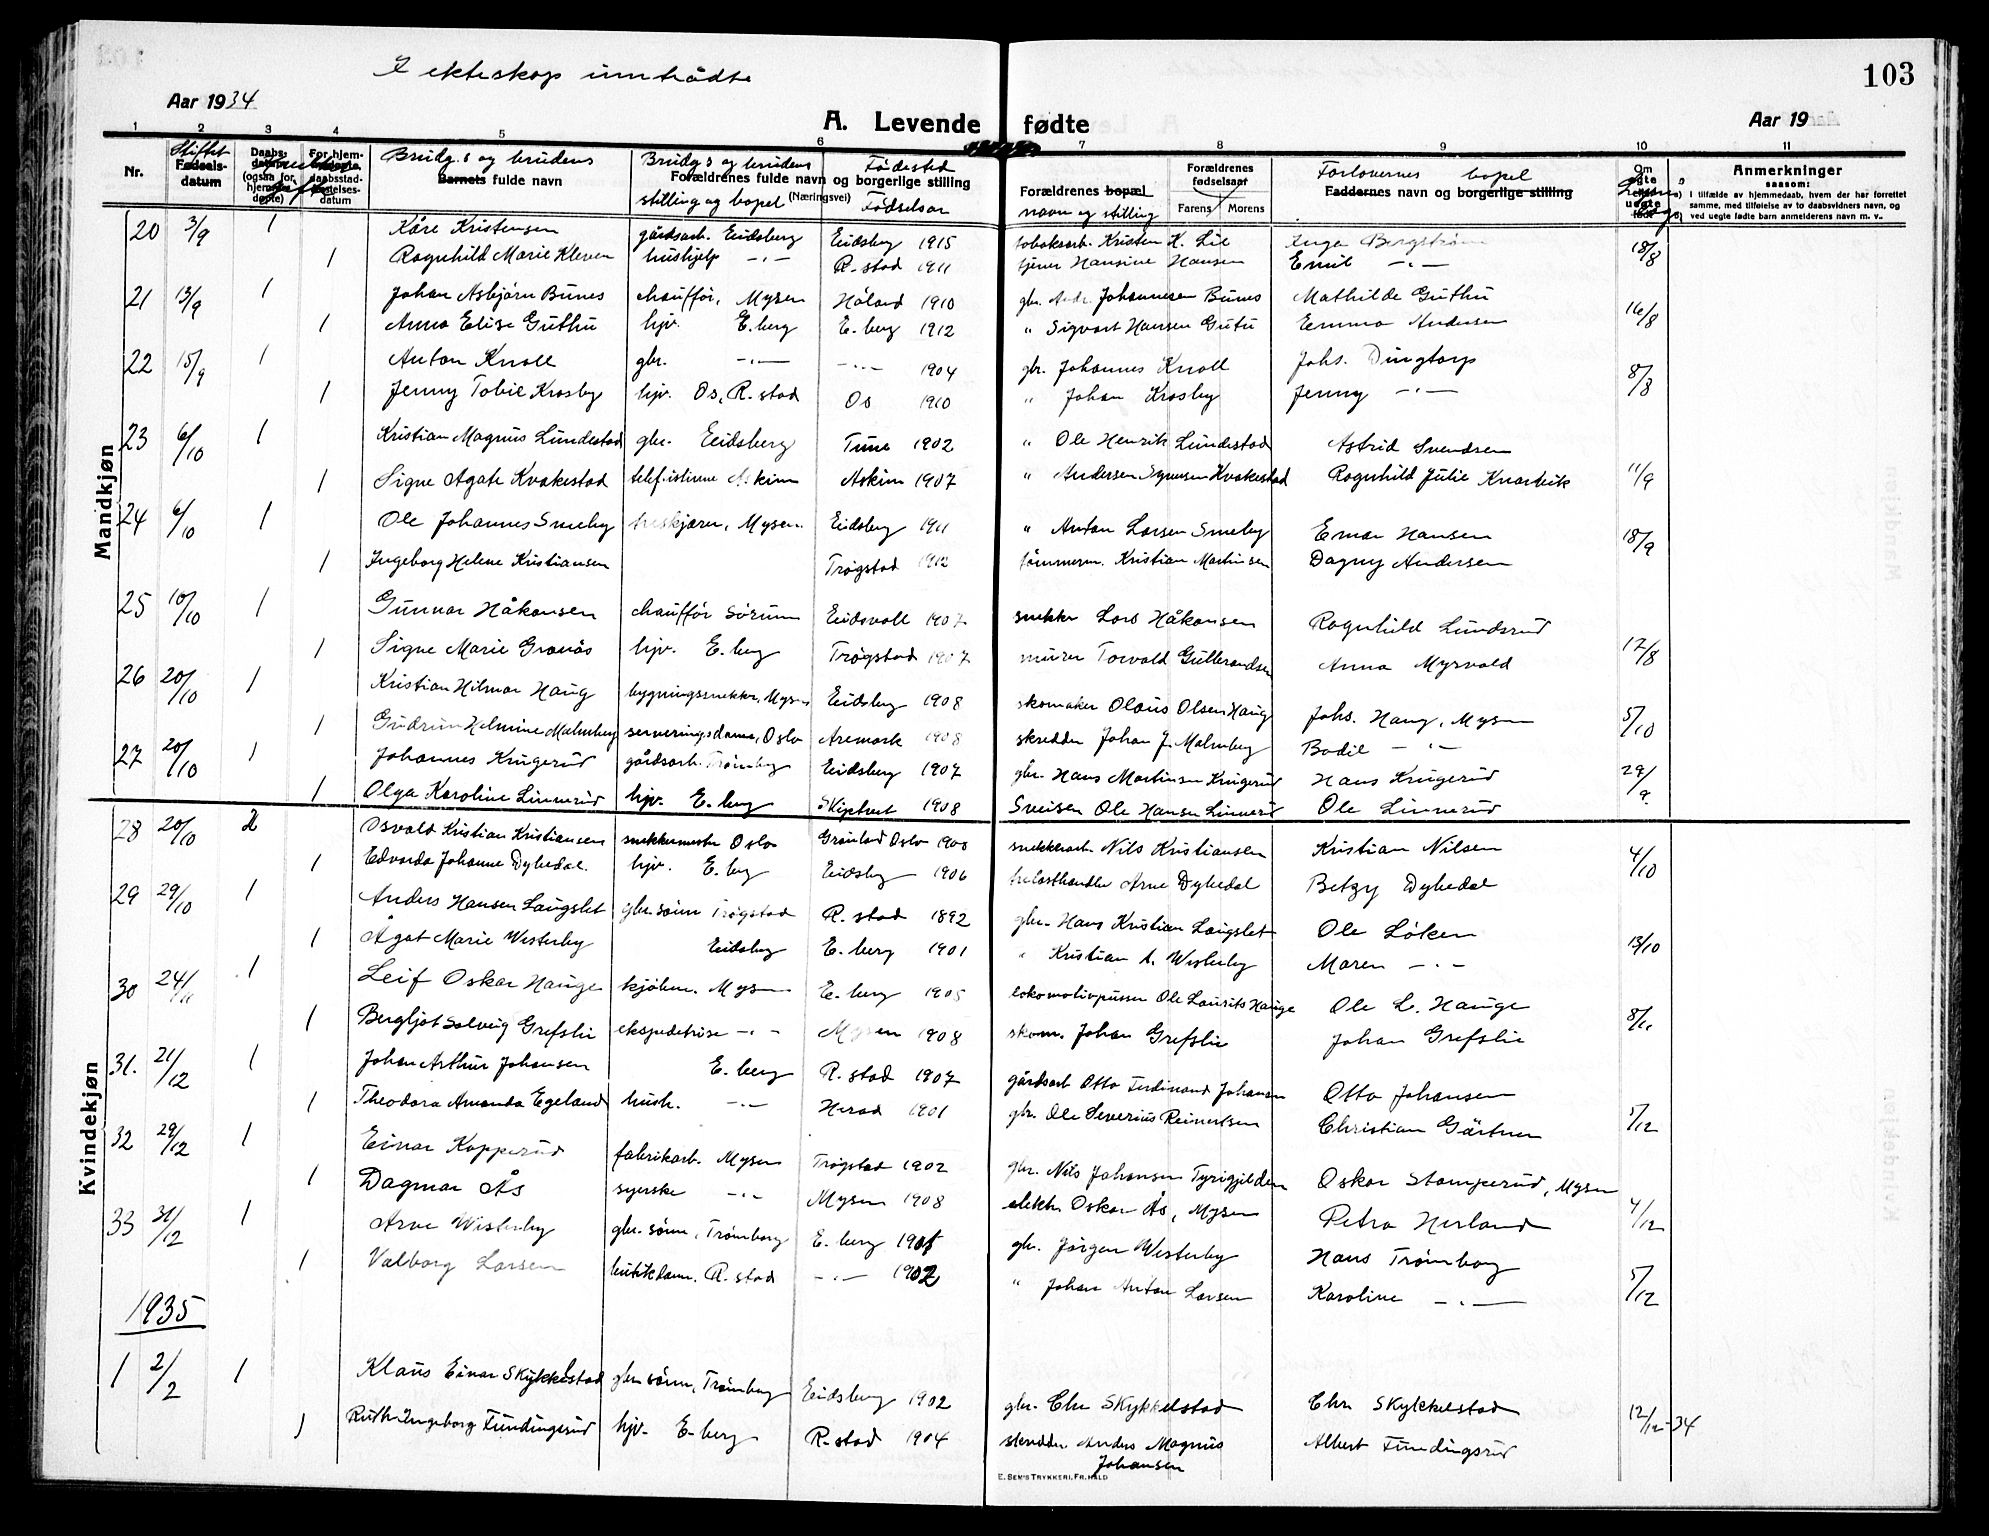 103
I ekteskap inntrådte
Aar 1934
Aar 19
A. Levende fødte
1 2 3 4 5 6 7 8 9 10 11
Nr.
Stiftet
Fødsels-datum
Daabs-
(ogsaa for hjemme-døpte)
For hjem-
daabsstad-festelses-datum
Brudg.s og brudens
Barnets fulde navn
Brudg.s og brudens
Forældrenes fulde navn og borgerlige stilling
stilling og bopel (Næringsvei)
Fødested
Fødselsår
Forældrenes bopæl
navn og stilling
Forældrenes fødselsaar
Farens Morens
Forlovernes bopel
Faddernes navn og borgerlige stilling
Om egte eller uegte født
Anmerkninger
saasom:
I tilfælde av hjemmedaab, hvem der har forrettet samme, med tilføielse av to daabsvidners navn, og ved uegte fødte barn anmelderens navn m. v.
Mandkjøn
20 3/9 1 Kåre Kristensen gårdsarb. Eidsberg Eidsberg 1915 tobaksarb. Kristen K. Lie Inga Bergstrøm 18/8
1 Ragnhild Marie Kleven hushjelp -"- R.stad 1911 tjener Hansine Hansen Emil -"-
21 13/9 1 Johan Asbjørn Bunes chauffør, Mysen Høland 1910 gbr. Andr. Johannesen Bunes Mathilde Guthu 16/8
1 Anna Elise Guthu hjv. E.berg E.berg 1912 " Sigvart Hansen Gutu Emma Andersen
22 15/9 1 Anton Knoll gbr. -"- -"- 1904 gbr. Johannes Knoll Johs. Dingtorp 8/8
1 Jenny Tobie Krosby hjv. Os, R.stad Os 1910 " Johan Krosby Jenny -"-
23 6/10 1 Kristian Magnus Lundestad gbr. Eidsberg Tune 1902 " Ole Henrik Lundestad Astrid Svendsen 11/9
1 Signe Agate Kvakestad telefistinne Askim Askim 1907 " Andersen Kvakestad Ragnhild Julie
24 6/10 1 Ole Johannes Smeby treskjærer, Mysen Eidsberg 1911 " Anton Larsen Smeby Einar Hansen 18/9
1 Ingeborg Helene Kristiansen Trøgstad 1912 tømmerm. Kristian Martinsen Dagny Andersen
25 10/10 1 Gunnar Håkonsen chauffør Sørum Eidsvoll 1907 snekker Lars Håkonsen Ragnhild Lundsrud 12/8
1 Signe Marie Granås hjv. E.berg Trøgstad 1907 murer Torvald Gulbrandsen Anna Myrvold
26 20/10 1 Kristian Hilmar Haug bygningssnekker, Mysen Eidsberg 1908 skomaker Olaus Olsen Haug Johs. Haug, Mysen 5/10
1 Gudrun Helmine Malmberg serveringsdame, Oslo Aremark 1908 skredder Johan J. Malmberg Bodil -"-
27 20/10 1 Johannes Krugerud gårdsarb. Trømborg Eidsberg 1907 gbr. Hans Martinsen Krugerud Hans Krugerud 29/9
1 Olga Karoline Linnerud hjv. E.berg Skiptvet 1908 Sveisen Ole Hansen Linnerud Ole Linnerud
Kvindekjøn
28 20/10 2 Osvald Kristian Kristiansen snekkermester Oslo Grønland Oslo 1900 snekkerarb. Nils Kristiansen Kristian Nilsen 4/10
1 Edvarda Johanne Dybedal hjv. E.berg Eidsberg 1906 trelasthandler Arne Dybedal Betzy Dybedal
29 29/10 1 Anders Hansen Langslet gbr.sønn Trøgstad R.stad 1892 gbr. Hans Kristian Langslet Ole Løken 13/10
1 Ågot Marie Westerby Eidsberg E.berg 1901 " Kristian A. Westerby Maren -"-
30 24/11 1 Leif Oskar Hauge kjøbm. Mysen E.berg 1905 lokomotivpusser Ole Laurits Hauge Ole L. Hauge 8/11
1 Bergljot Solveig Grefslie ekspeditrise -"- Mysen 1908 skom. Johan Grefslie Johan Grefslie
31. 21/12 1 Johan Arthur Johansen E.berg R.stad 1907 gårdsarb Otto Ferdinand Johansen Otto Johansen 5/12
1 Theodora Amanda Egeland hush. -"- Herad 1901 gbr. Ole Severius Reinertsen Christian Gärtner
32 29/12 1 Einar Kopperud fabrikarb. Mysen Trøgstad 1902 gbr. Nils Johansen Tyrigjelden Oskar Stomperud, Mysen 4/12
1 Dagmar Ås syerske -"- Mysen 1908 elektr. Oskar Ås, Mysen Petra Herland
33 31/12 1 Arne Westerby gbr.sønn, Trømborg E.berg gbr. Jørgen Westerby Hans Trømborg 5/12
1 Valborg Larsen butikkdame, R.stad -"- 1902 " Johan Anton Larsen Karoline -"-
1935
1 2/2 1 Klaus Einar Skykkelstad gbr.sønn, Trømborg Eidsberg 1902 gbr. Chr Skykkelstad Chr Skykkelstad 12/12-34
1 Ruth Ingeborg Fundingsrud hjv. E.berg R.stad 1904 skredder Anders Magnus Johansen Albert Fundingsrud
E. SEM'S TRYKKERI, FR.HALD